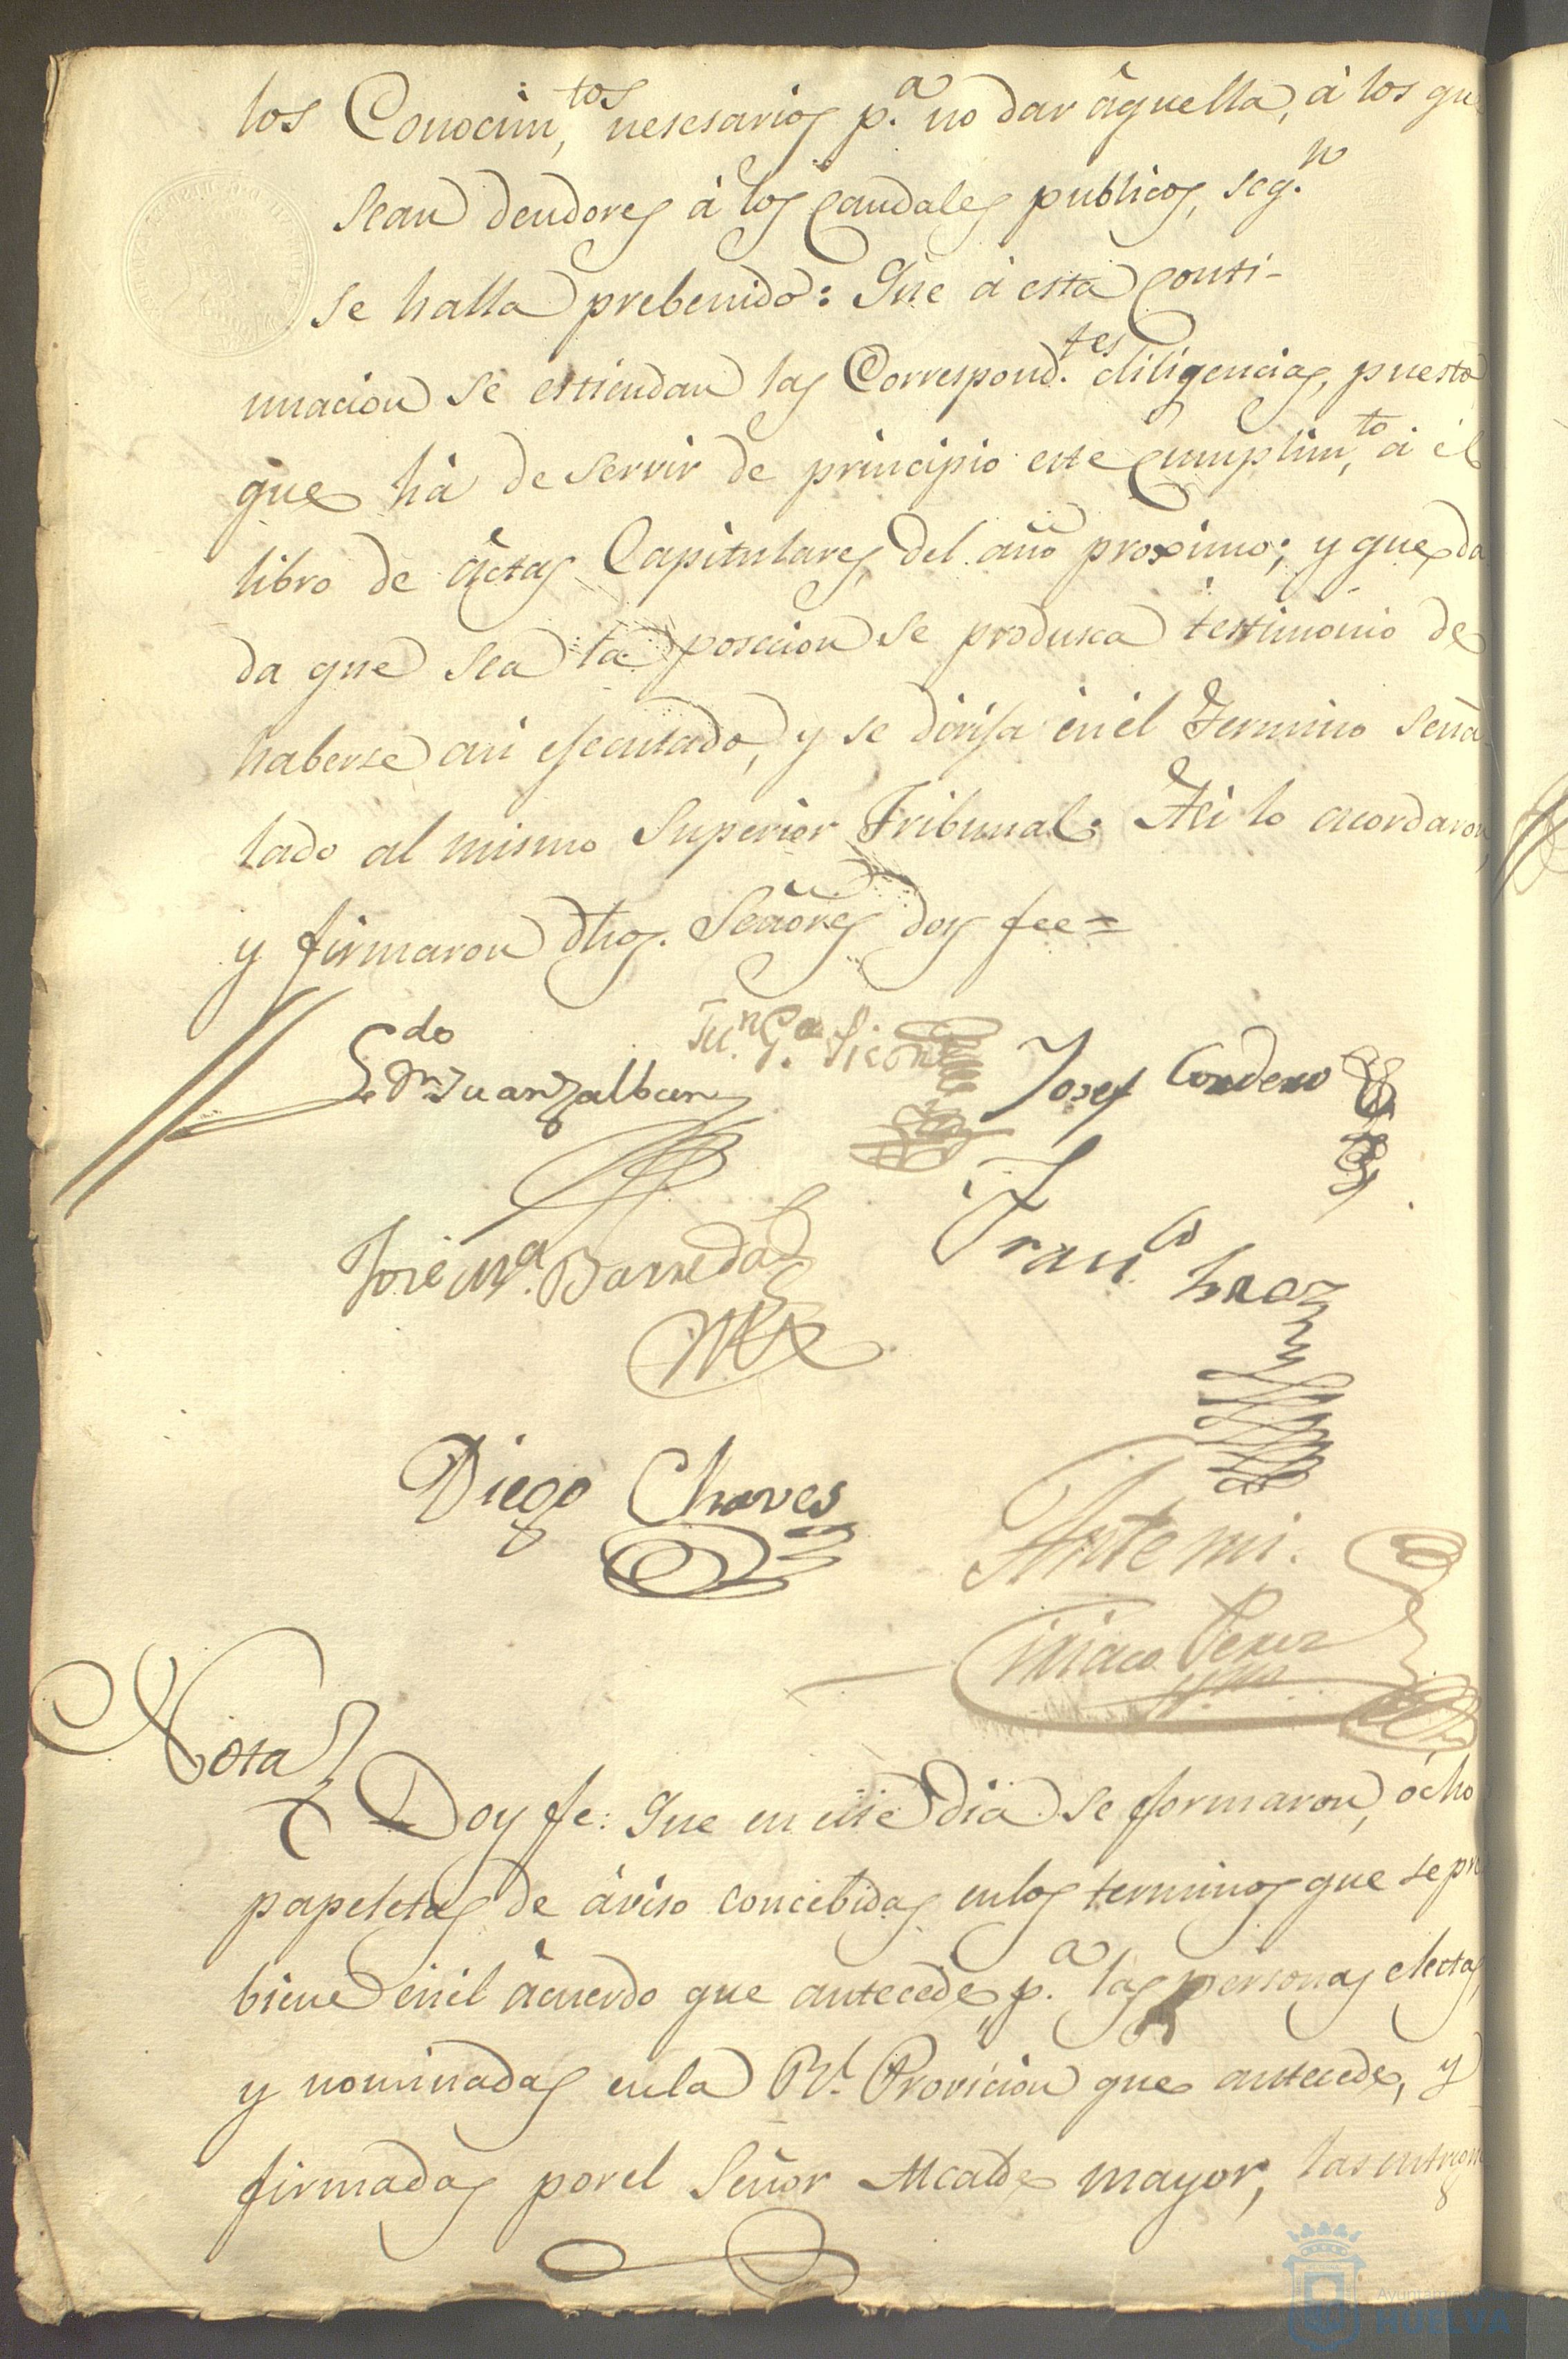 los Conocim,tos nesesarios p.a no dar âquella, à los que
sean deudores à los caudales publicos, seg.n
se halla prebenido: Que à esta conti-
nuacion se estiendan las Correspond.tes diligencias, puesto
que hà de servir de principio este cumplim,to à él
libro de âctas Capitulares, del año proximo; y que da
da que sea la posecion se produsca testimonio de
haberse asi ejecutado, y se dirija en él Termino seña
lado al mismo Superior Tribunal. Asi lo acordaron,
y firmaron dhos. Señores doy fee=
L.do dn Juan Zalban
Ju.n G.a
Josef Cordero
José M.a Barreda
Fran.co
Diego Chaves
Ante mi.
Ciriaco Perez
Nota
Doy fe: Que en este dia se formaron, ócho
papeletas de àviso concebidas en los terminos que se pre
biene en él àcuerdo que antecede p.a las personas electas,
y nominadas en la Rl. Provicion que antecede, y
firmadas por el Señor Alcalde mayor, las entregue
HUELVA